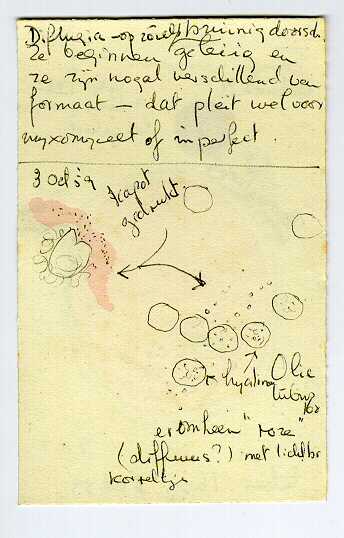 Difflugia - op zoveel bruinig doorsch.
ze beginnen geleiig en
ze zijn nogal verschillend van
formaat — dat pleit wel voor
myxomyceet of imperfect.
3 Oct
kapot
gedrukt.
← hyaline Olie
er omheen "roze"
(diffuus?) met lichtbr
korreltjes